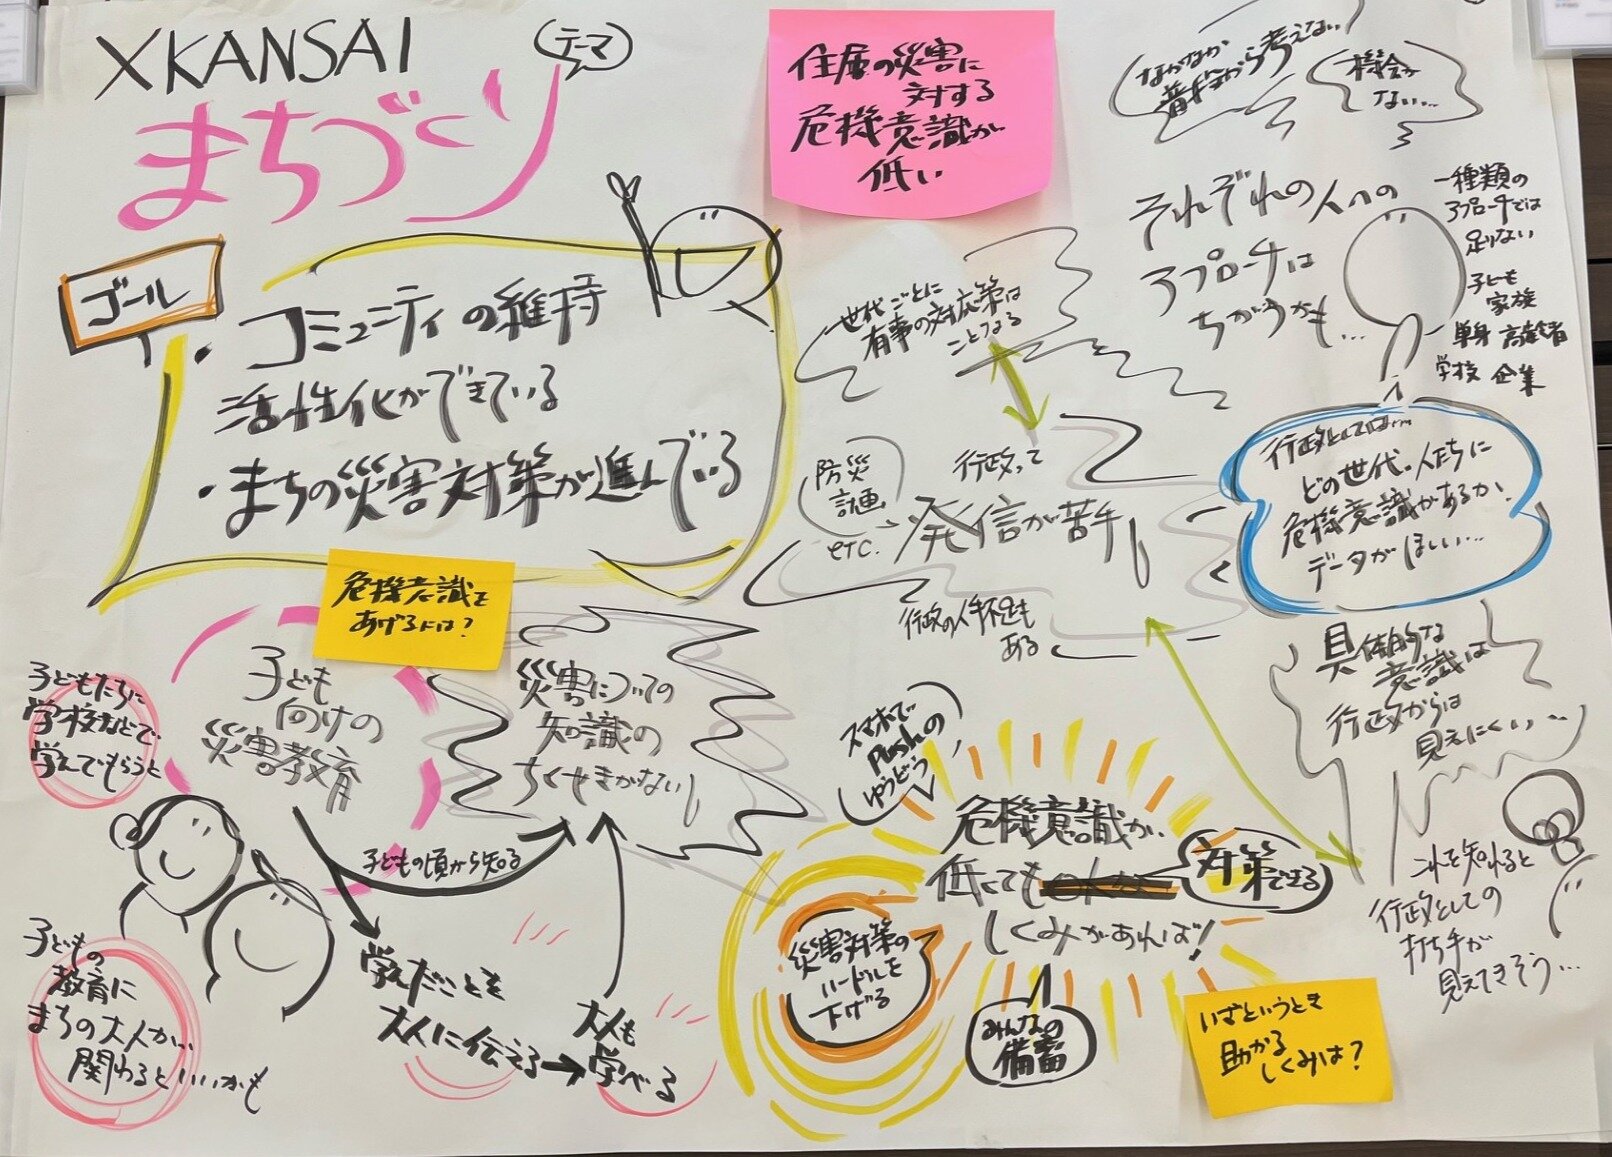 XKANSAI
テーマ
まちづくり
ゴール
・コミュニティの維持
活性化ができている
・まちの災害対策が進んでいる
住層の災害に
対する
危機意識が
低い
なかなか
普段から考えない
機会が
ない…
それぞれの人への
アプローチは
ちがうかも…
一種類の
アプローチでは
足りない
子ども
家族
単身 高齢者
学校 企業
世代ごとに
有事の対応策は
ことなる
防災
計画
etc.
行政って
発信が苦手
行政の人手不足も
ある
行政としては…
どの世代、人たちに
危機意識があるか、
データがほしい…
具体的な
意識は
行政からは
見えにくい…
これを知れると
行政としての
打ち手が
見えてきそう…
危機意識を
あげるには?
子どもたちに
学校などで
学んでもらうと
子ども
向けの
災害教育
災害についての
知識の
ちくせきがない
子どもの頃から知る
子どもの
教育に
まちの大人が…
関わるといいかも
学んだことを
大人に伝える
大人も
学べる
スマホで
Pushの
ゆうどう
危機意識が
低くても
対策できる
しくみがあれば!
災害対策の
ハードルを
下げる
みんなの
備蓄
いざというとき
助かる
しくみは?